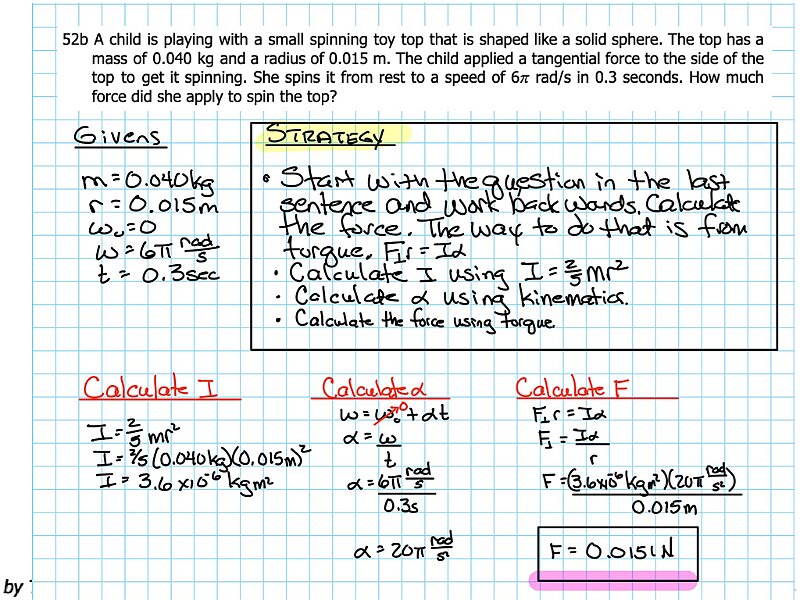 52b A child is playing with a small spinning toy top that is shaped like a solid sphere. The top has a
mass of 0.040 kg and a radius of 0.015 m. The child applied a tangential force to the side of the
top to get it spinning. She spins it from rest to a speed of 6π rad/s in 0.3 seconds. How much
force did she apply to spin the top?
Givens
m = 0.040kg
r = 0.015m
ω₀ = 0
ω = 6π rad/s
t = 0.3sec
STRATEGY
• Start with the question in the last
sentence and work backwards. Calculate
the force. The way to do that is from
torque. F⊥r = Iα
• Calculate I using I = 2/5 mr²
• Calculate α using kinematics.
• Calculate the force using torque.
Calculate I
I = 2/5 mr²
I = 2/5 (0.040kg)(0.015m)²
I = 3.6 x10⁻⁶ kgm²
Calculate α
ω = ω₀ 0 + αt
α = ω/t
α = 6π rad/s / 0.3s
α = 20π rad/s²
Calculate F
F⊥r = Iα
F⊥ = Iα/r
F = (3.6x10⁻⁶ kgm²)(20π rad/s²) / 0.015m
F = 0.0151N
by